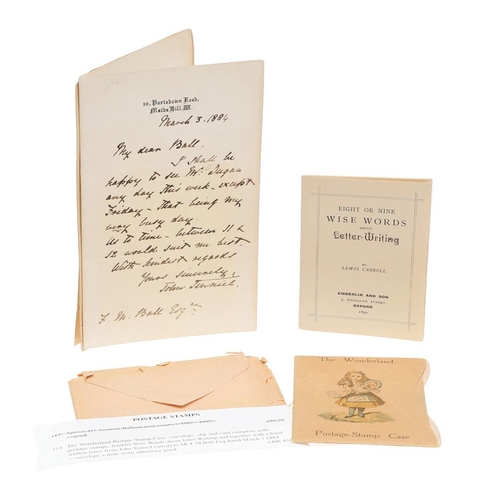 10, Portsdown Road,
Maida Hill, W.
March 3. 1884
My dear Ball.
I shall be
happy to see Mr.
any day this week, except
Friday – that being my
very busy day.
As to time – between 11 &
12 would suit me best
With kindest regards
Yours sincerely,
John Tenniel
F. M. Ball Esqre
EIGHT OR NINE
WISE WORDS
ABOUT
Letter-Writing
BY
LEWIS CARROLL
EMBERLIN AND SON
4, MAGDALEN STREET
OXFORD
1890
The Wonderland
Postage-Stamp Case
POSTAGE STAMPS
The Wonderland Postage Stamp Case